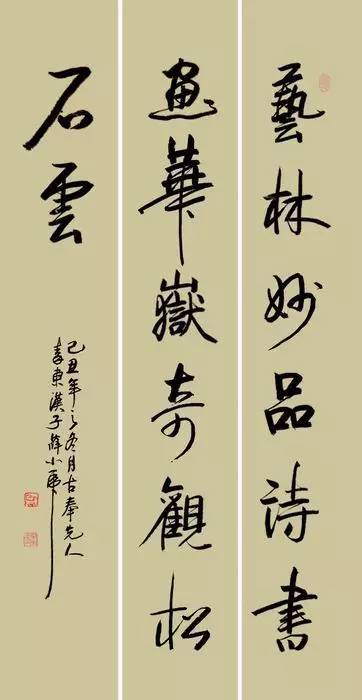 藝林妙品詩書
畫華嶽奇觀松
石雲
己丑年之冬月古奉先人
秦東漢子薛小虎